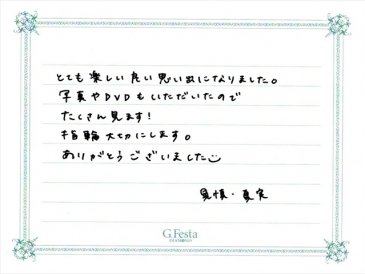 とても楽しい良い思い出になりました。
写真やDVDもいただいたので
たくさん見ます!
指輪大切にします。
ありがとうございました
晃慎・夏実
G.Festa